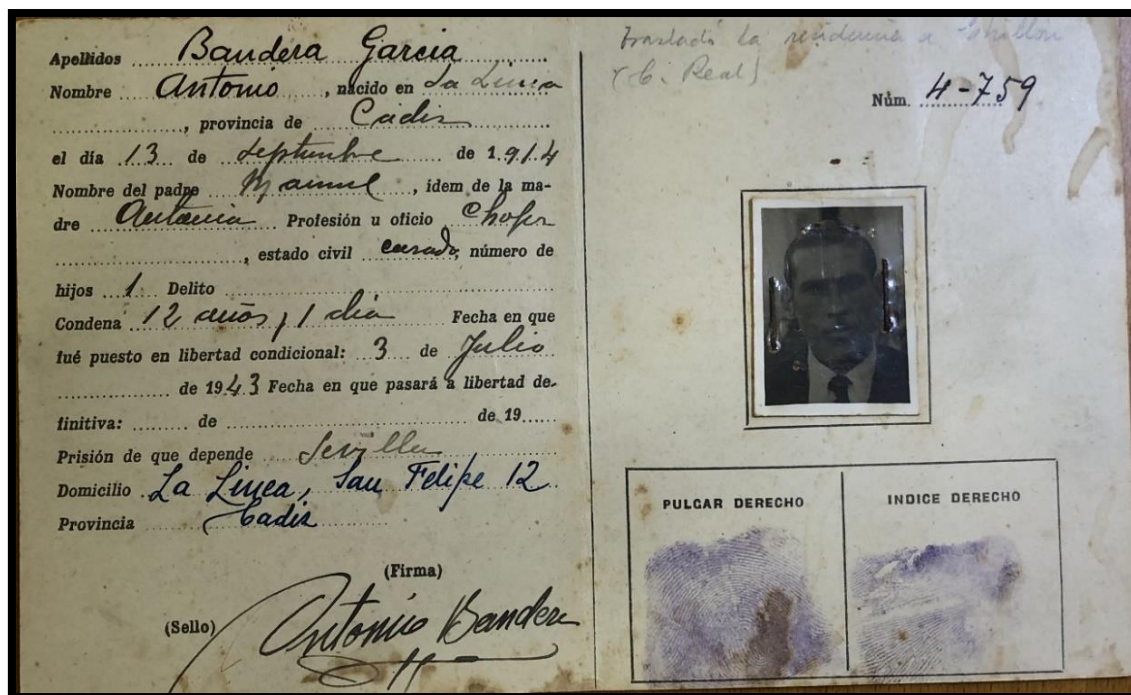 Apellidos Bandera Garcia
Nombre Antonio, nacido en La Linea
, provincia de Cadiz
el día 13 de Septiembre de 1.914
Nombre del padre Manuel, ídem de la ma-
dre Antonia Profesión u oficio Chofer
, estado civil casado, número de
hijos 1 Delito
Condena 12 años y 1 dia Fecha en que
fué puesto en libertad condicional: 3 de Julio
de 1943 Fecha en que pasará a libertad de-
finitiva: de de 19
Prisión de que depende Sevilla
Domicilio La Linea, San Felipe 12
Provincia Cadiz
(Firma)
(Sello) Antonio Bandera
Traslada la residencia a
(C. Real)
Núm. 4-759
PULGAR DERECHO
INDICE DERECHO